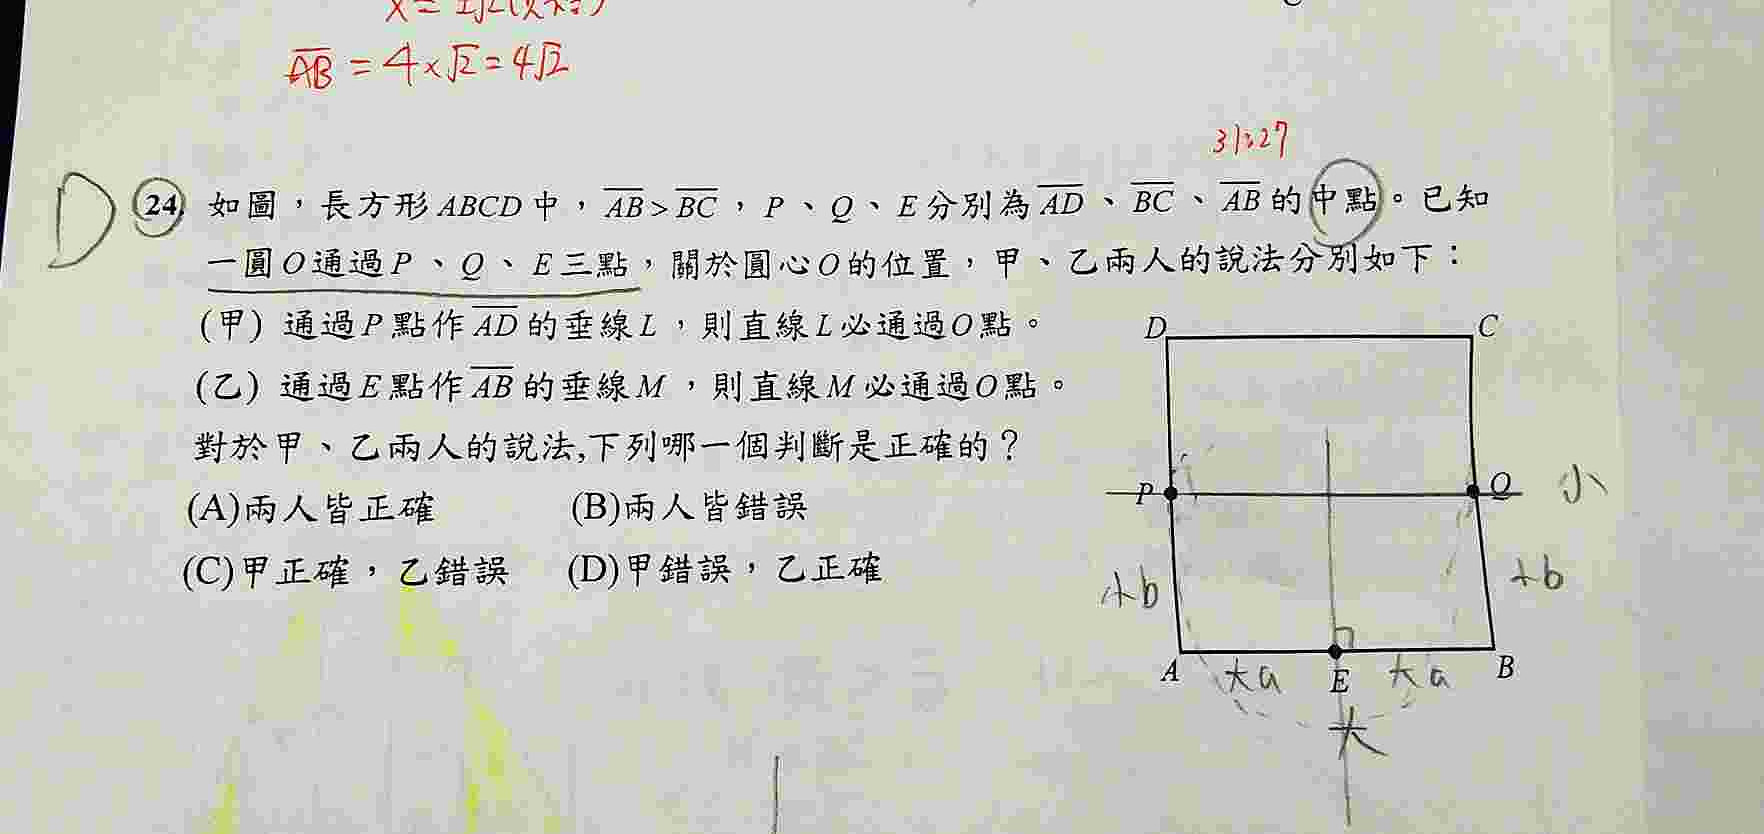 AB = 4×√2 = 4√2
31:27
D 24. 如圖，長方形ABCD中，AB>BC，P、Q、E分別為AD、BC、AB的中點。已知
一圓O通過P、Q、E三點，關於圓心O的位置，甲、乙兩人的說法分別如下：
(甲) 通過P點作AD的垂線L，則直線L必通過O點。
(乙) 通過E點作AB的垂線M，則直線M必通過O點。
對於甲、乙兩人的說法,下列哪一個判斷是正確的？
(A)兩人皆正確 (B)兩人皆錯誤
(C)甲正確，乙錯誤 (D)甲錯誤，乙正確
D C
P Q 小
小b 小b
A 大a E 大a B
大